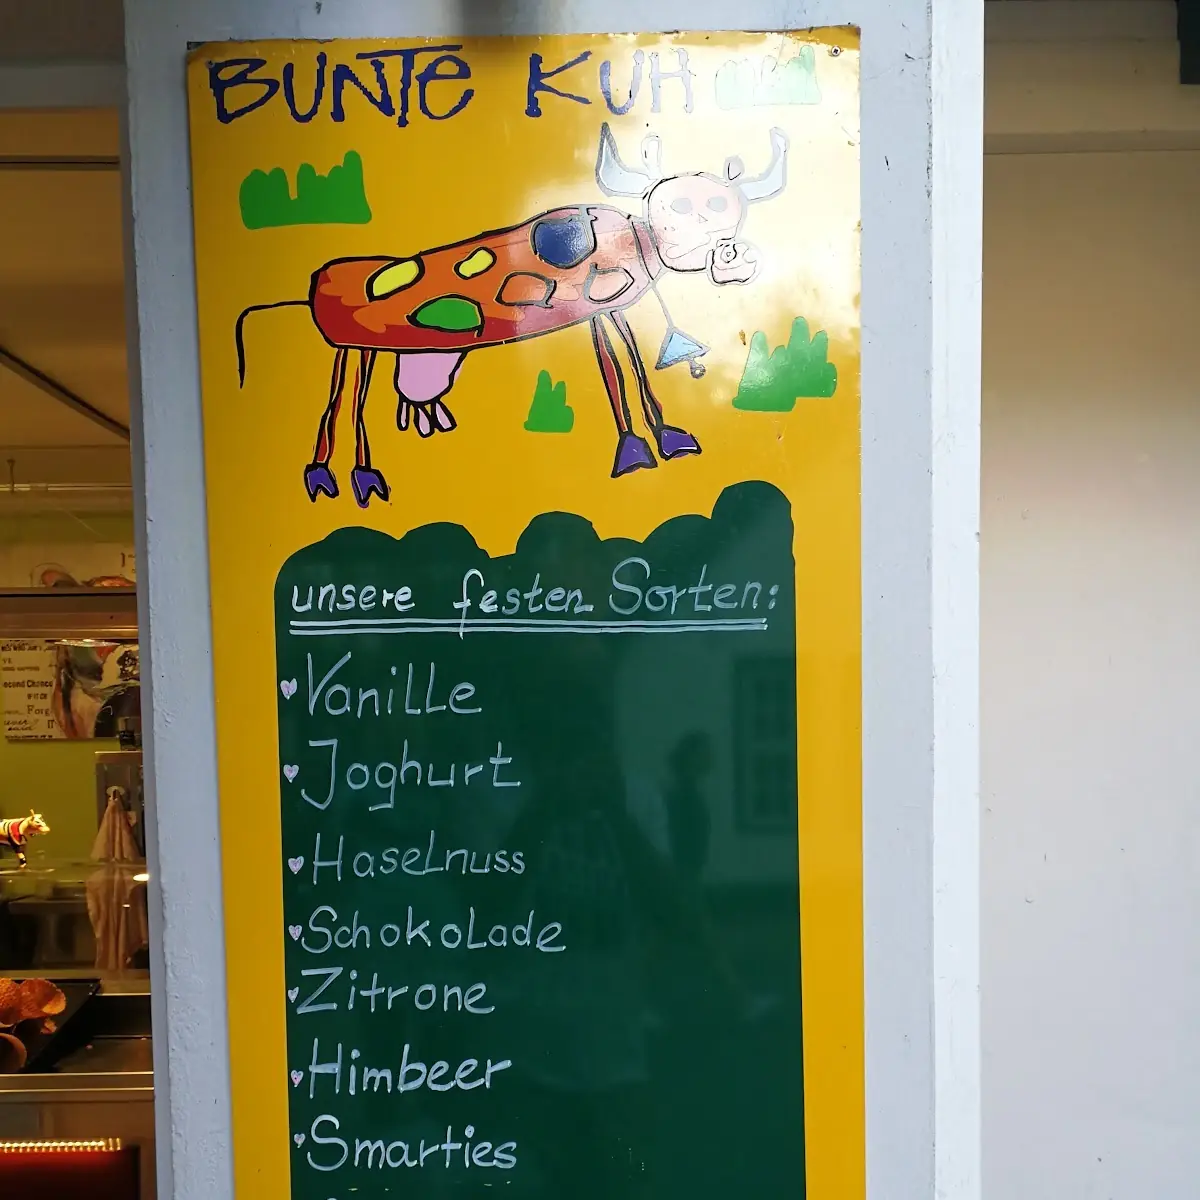 BUNTE KUH
unsere festen Sorten:
Vanille
Joghurt
Haselnuss
Schokolade
Zitrone
Himbeer
Smarties
econd Chance
IT